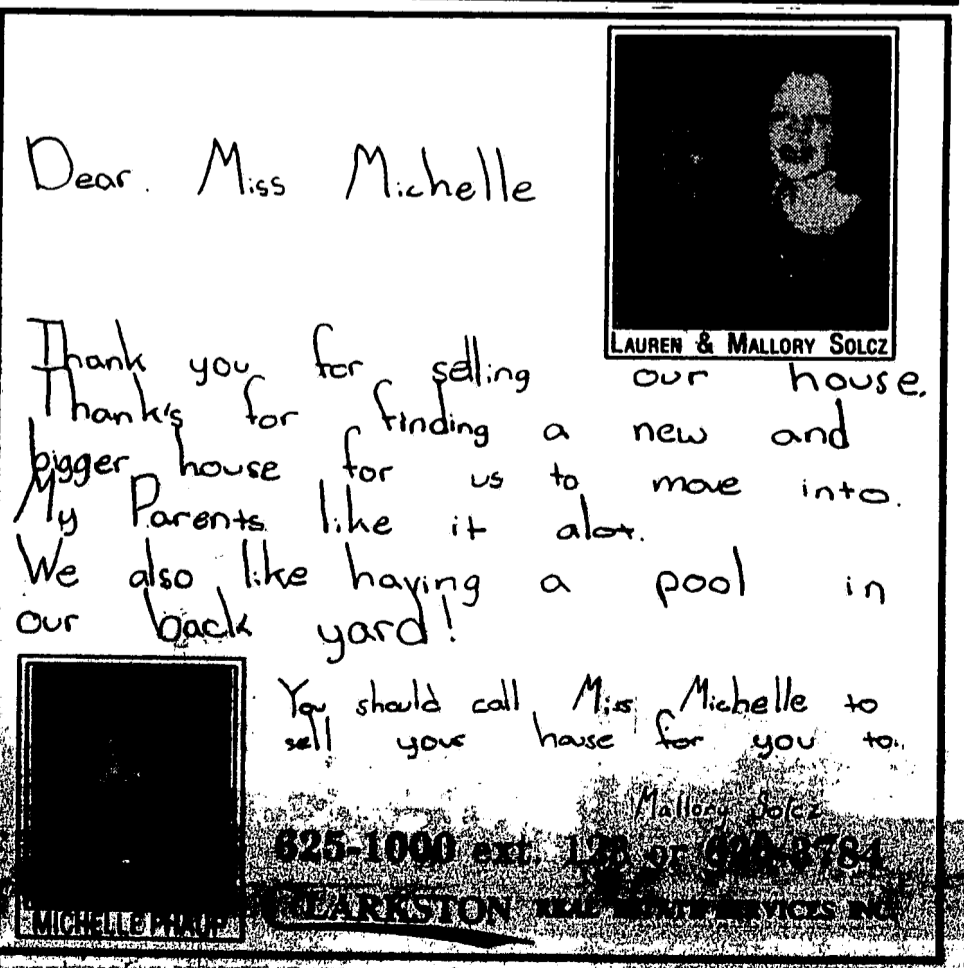 Dear. Miss Michelle
LAUREN & MALLORY SOLCZ
Thank you for selling our house.
Thank's for finding a new and
bigger house for us to move into.
My Parents like it alot.
We also like having a pool in
our back yard!
You should call Miss Michelle to
sell your house for you to.
Mallory Solcz
625-1000 ext. or
MICHELLE PHAUP
CLARKSTON REAL ESTATE SERVICES INC